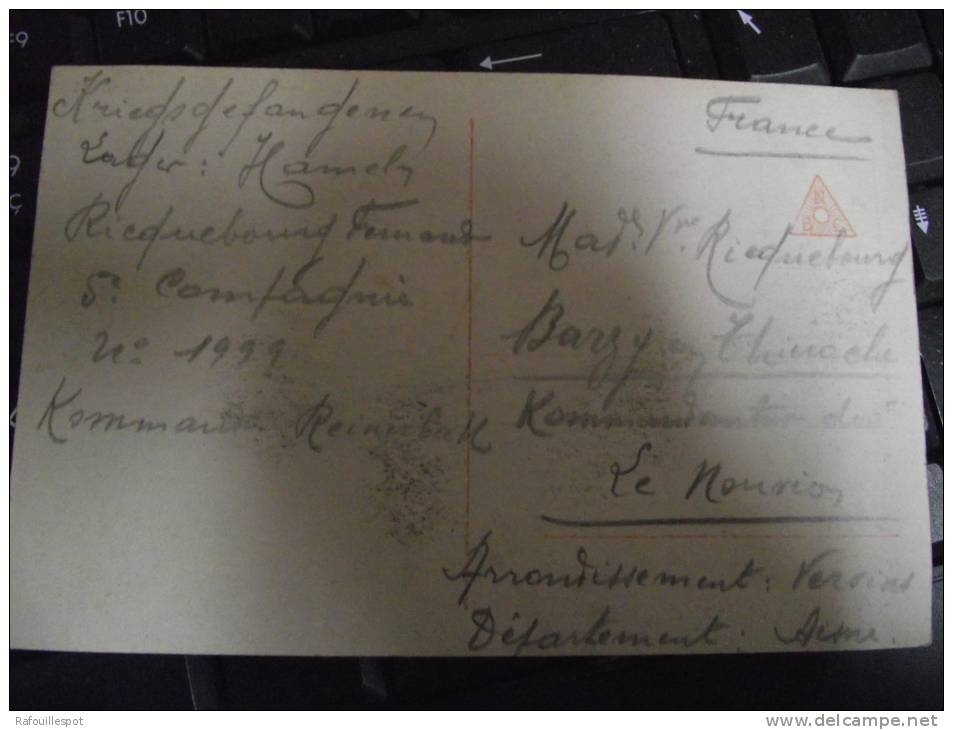 Kriegsgefangenen
Lager: Hameln
Ricquebourg Fernand
5e Compagnie
No 1999
Kommando
France
N
B G
Made Vve Ricquebourg
Barzy en Thiérache
Kommandantur
Le Nouvion
Arrondissement: Vervins
Département: Aisne.
F10
F9
Rafouillespot
www.delcampe.net